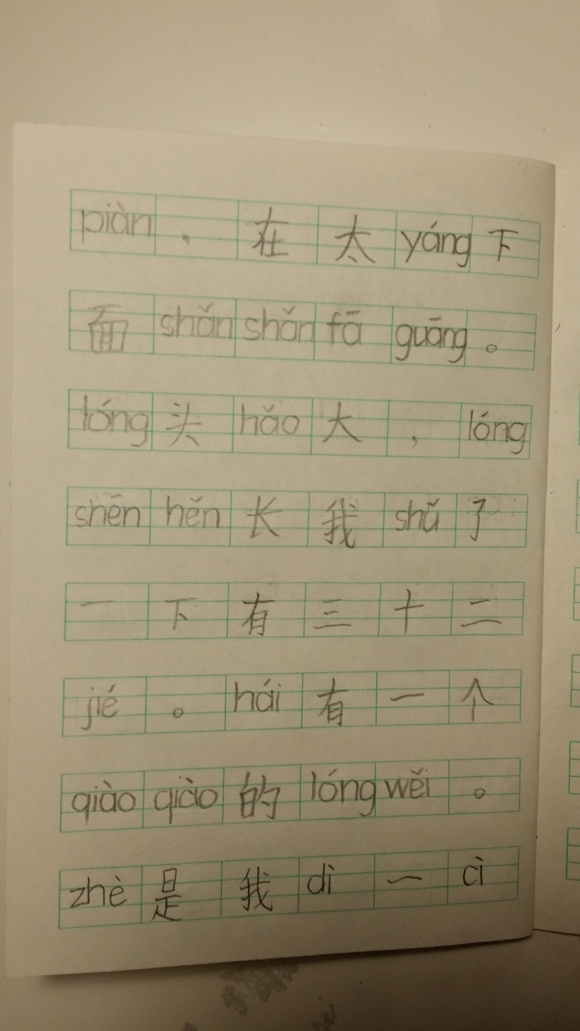 piàn ， 在 太 yáng 下
面 shǎn shǎn fā guāng 。
lóng 头 hǎo 大 ， lóng
shēn hěn 长 我 shǔ 了
一 下 有 三 十 二
jié 。 hái 有 一 个
qiào qiào 的 lóng wěi 。
zhè 是 我 dì 一 cì